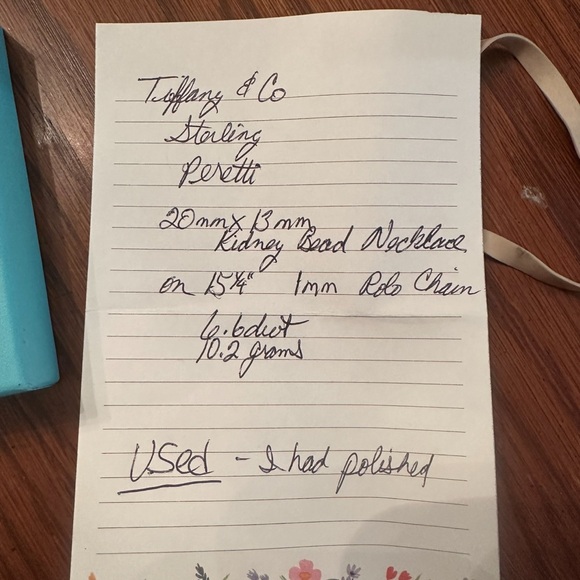 Tiffany & Co
Sterling
Peretti
20mm x 13mm
Kidney Bead Necklace
on 15 1/4" 1mm Rolo Chain
6.6dwt
10.2 grams
USed - I had polished